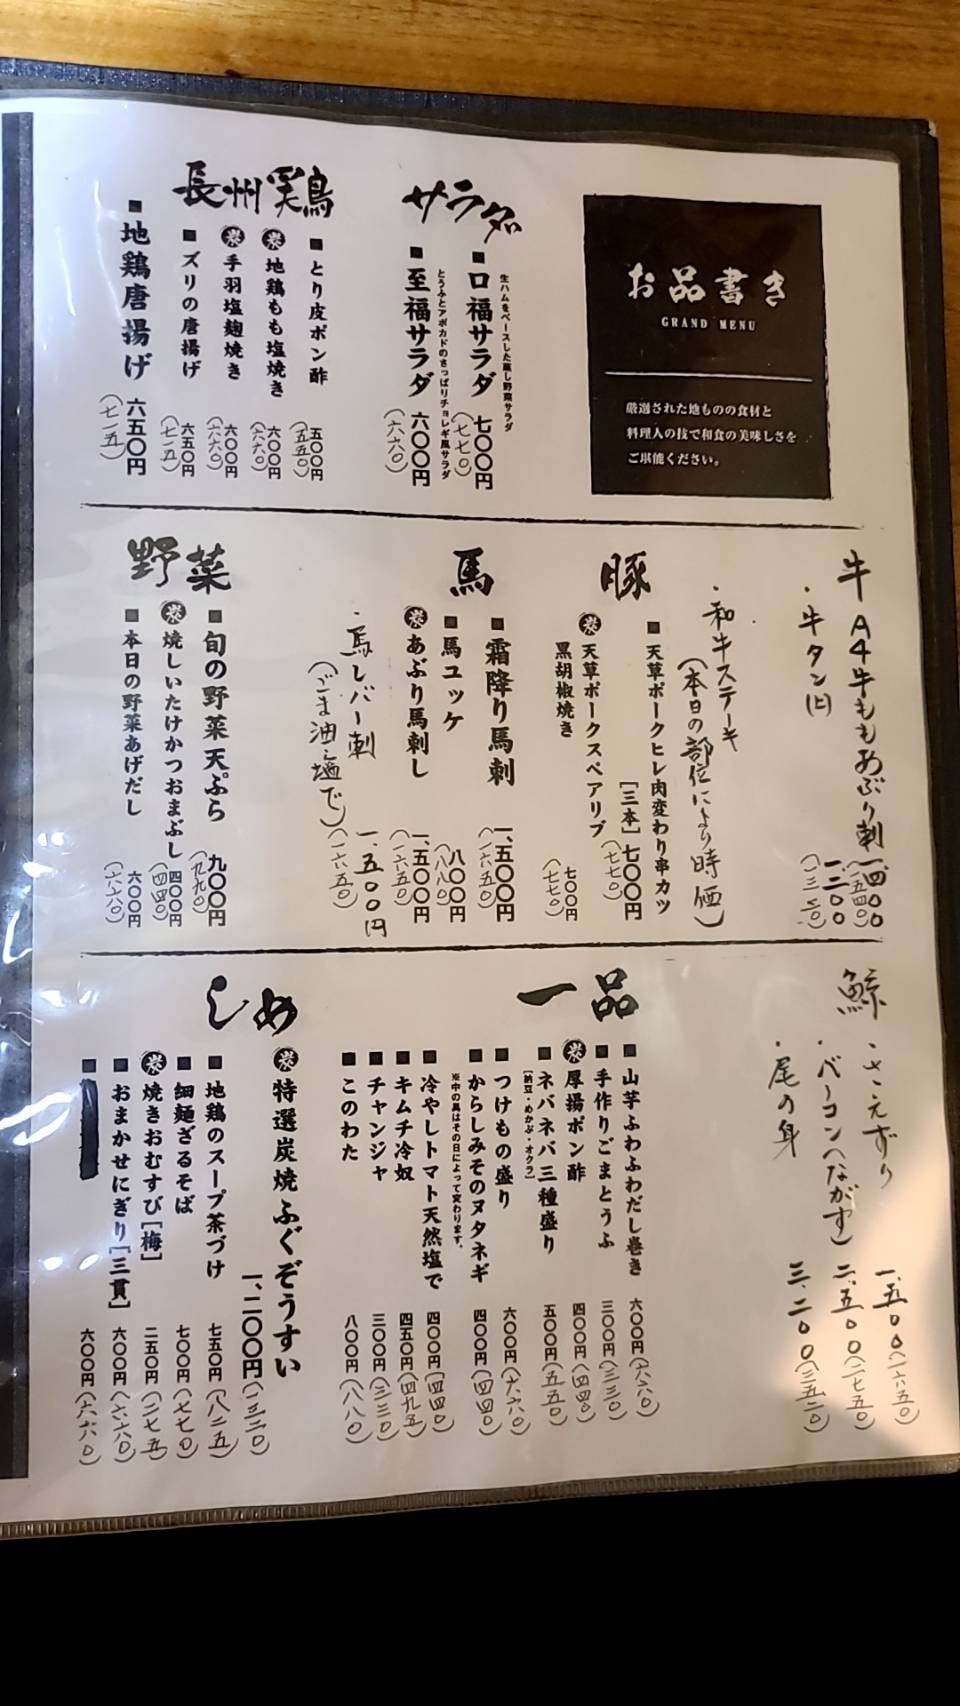 お品書き
GRAND MENU
厳選された地ものの食材と
料理人の技で和食の美味しさを
ご堪能ください。
サラダ
■口福サラダ 七〇〇円(七七〇)
生ハムをベースした蒸し野菜サラダ
■至福サラダ 六〇〇円(六六〇)
とうふとアボカドのさっぱりチョレギ風サラダ
長州鶏
■とり皮ポン酢 五〇〇円(五五〇)
炭 地鶏もも塩焼き 六〇〇円(六六〇)
炭 手羽塩麹焼き 六〇〇円(六六〇)
■ズリの唐揚げ 六五〇円(七一五)
■地鶏唐揚げ 六五〇円(七一五)
牛
A4牛ももあぶり刺 一、四〇〇(一五四〇)
・牛タン(上) 一二〇〇(一三二〇)
・和牛ステーキ
(本日の部位により時価)
豚
■天草ポークヒレ肉変わり串カツ
[三本]七〇〇円(七七〇)
炭 天草ポークスペアリブ
黒胡椒焼き 七〇〇円(七七〇)
馬
■霜降り馬刺 一、五〇〇円(一六五〇)
■馬ユッケ 八〇〇円(八八〇)
炭 あぶり馬刺し 一、五〇〇円(一六五〇)
・馬レバー刺 一、五〇〇円(一六五〇)
(ごま油・塩で)
野菜
■旬の野菜天ぷら 九〇〇円(九九〇)
炭 焼しいたけかつおまぶし 四〇〇円(四四〇)
■本日の野菜あげだし 六〇〇円(六六〇)
鯨
・さえずり 一、五〇〇(一六五〇)
・ベーコン(ながす) 二、五〇〇(二七五〇)
・尾の身 三、二〇〇(三五二〇)
一品
■山芋ふわふわだし巻き 六〇〇円(六六〇)
■手作りごまとうふ 三〇〇円(三三〇)
炭 厚揚ポン酢 四〇〇円(四四〇)
■ネバネバ三種盛り 五〇〇円(五五〇)
[納豆・めかぶ・オクラ]
■つけもの盛り 六〇〇円(六六〇)
■からしみそのヌタネギ 四〇〇円(四四〇)
※中の具はその日によって変わります。
■冷やしトマト天然塩で 四〇〇円(四四〇)
■キムチ冷奴 四五〇円(四九五)
■チャンジャ 三〇〇円(三三〇)
■このわた 八〇〇円(八八〇)
しめ
炭 特選炭焼ふぐぞうすい
一、二〇〇円(一三二〇)
■地鶏のスープ茶づけ 七五〇円(八二五)
■細麺ざるそば 七〇〇円(七七〇)
炭 焼きおむすび[梅] 二五〇円(二七五)
■おまかせにぎり[三貫] 六〇〇円(六六〇)
■ 六〇〇円(六六〇)